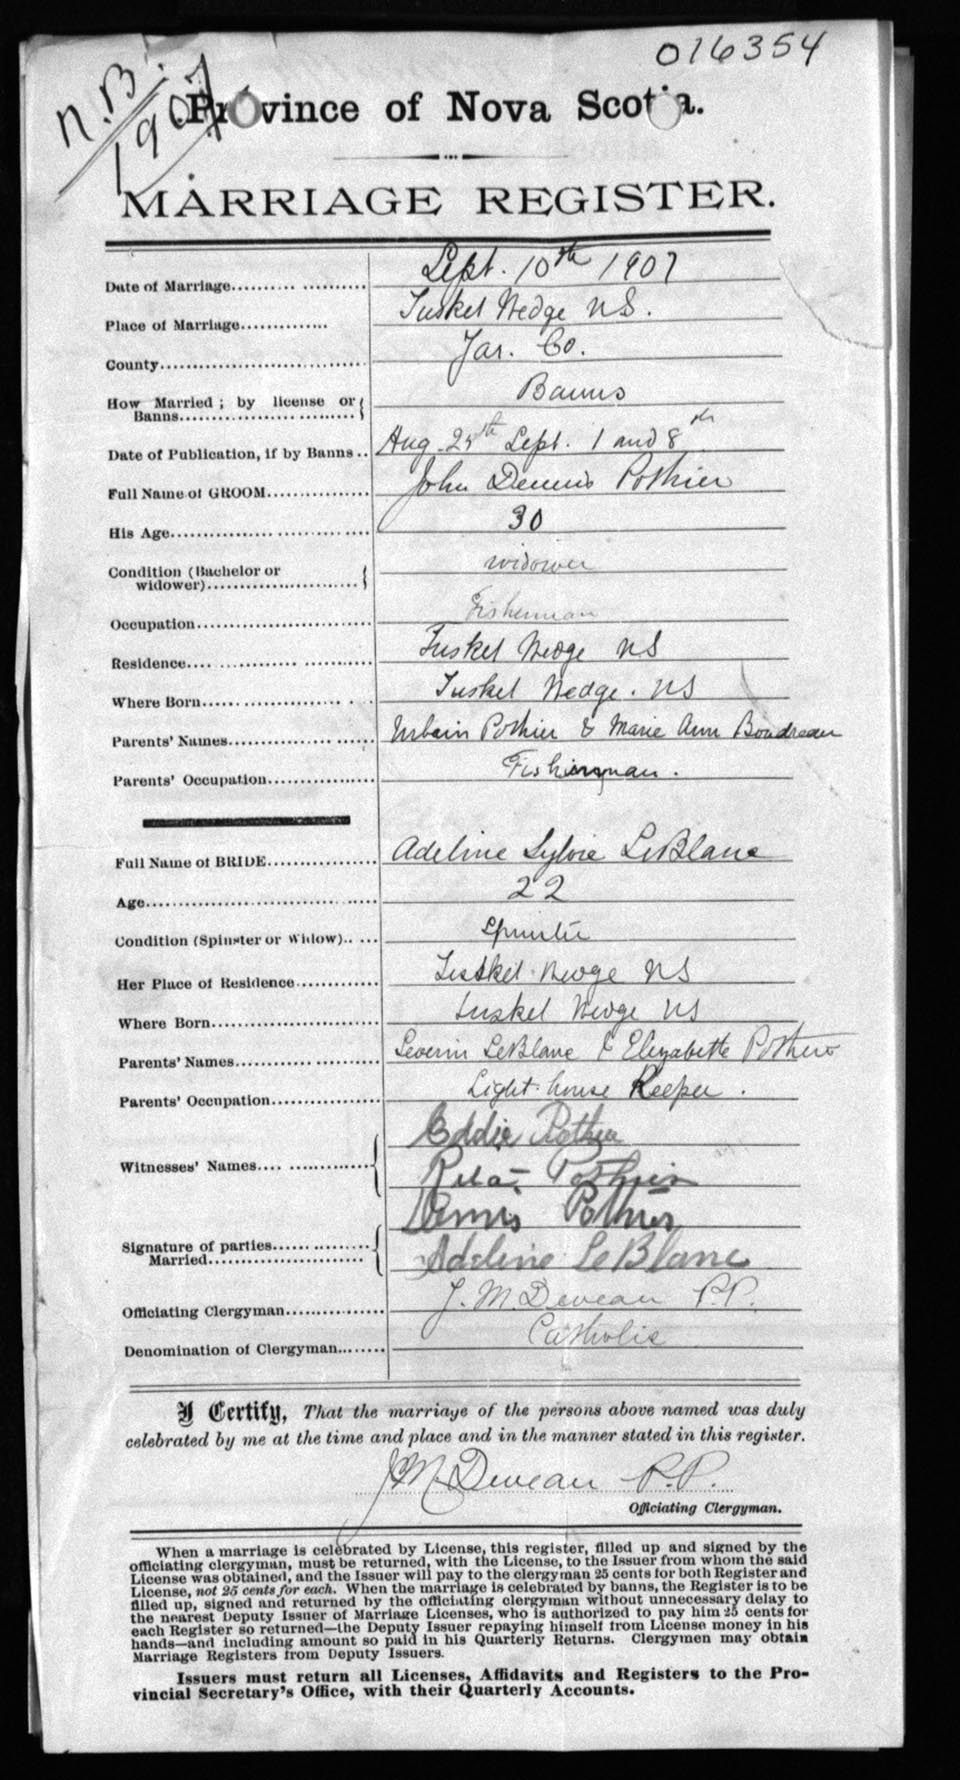 016354
N.B.
1907
Province of Nova Scotia.
MARRIAGE REGISTER.
Date of Marriage.................... Sept. 10th 1907
Place of Marriage............. Tusket Wedge NS.
County............................... Yar. Co.
How Married ; by license or Banns......................... Banns
Date of Publication, if by Banns.. Aug. 25th Sept. 1 and 8th
Full Name of GROOM............... John Dennis Pothier
His Age............................. 30
Condition (Bachelor or widower)...................... widower
Occupation......................... Fisherman
Residence.... ........................ Tusket Wedge NS
Where Born........................ Tusket Wedge. NS
Parents' Names.................... Urbain Pothier & Marie Ann Boudreau
Parents' Occupation............... Fisherman.
Full Name of BRIDE............... Adeline Sylvie LeBlanc
Age................................... 22
Condition (Spinster or Widow)..  ... Spinster
Her Place of Residence............ Tusket Wedge NS
Where Born........................ Tusket Wedge NS
Parents' Names.................... Severin LeBlanc & Elizabeth Pothier
Parents' Occupation............... Light-house Keeper.
Eddie Pothier
Witnesses' Names.... ............... Rita Pothier
Dennis Pothier
Signature of parties Married.................. Adeline LeBlanc
Officiating Clergyman............... J. M. Deveau P.P.
Denomination of Clergyman........ Catholic
I Certify, That the marriage of the persons above named was duly
celebrated by me at the time and place and in the manner stated in this register.
J M. Deveau P.P.
Officiating Clergyman.
When a marriage is celebrated by License, this register, filled up and signed by the
officiating clergyman, must be returned, with the License, to the Issuer from whom the said
License was obtained, and the Issuer will pay to the clergyman 25 cents for both Register and
License, not 25 cents for each. When the marriage is celebrated by banns, the Register is to be
filled up, signed and returned by the officiating clergyman without unnecessary delay to
the nearest Deputy Issuer of Marriage Licenses, who is authorized to pay him 25 cents for
each Register so returned—the Deputy Issuer repaying himself from License money in his
hands—and including amount so paid in his Quarterly Returns. Clergymen may obtain
Marriage Registers from Deputy Issuers.
Issuers must return all Licenses, Affidavits and Registers to the Pro-
vincial Secretary's Office, with their Quarterly Accounts.